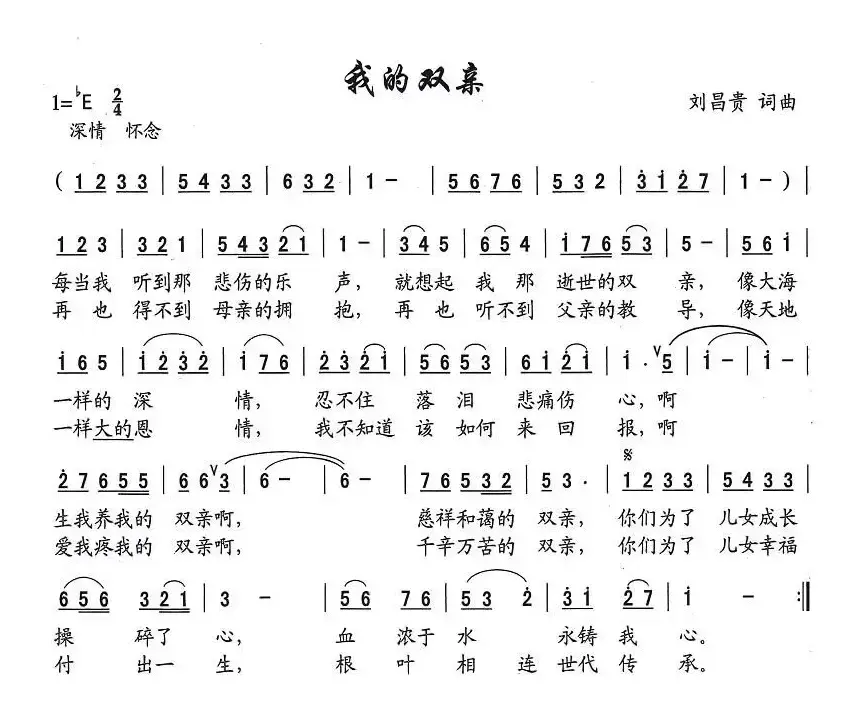 我的双亲
1=♭E 2/4
刘昌贵 词曲
深情 怀念
( 1 2 3 3 | 5 4 3 3 | 6 3 2 | 1 - | 5 6 7 6 | 5 3 2 | 3̇ 1̇ 2̇ 7 | 1 - ) |
1 2 3 | 3 2 1 | 5 4 3 2 1 | 1 - | 3 4 5 | 6 5 4 | 1̇ 7 6 5 3 | 5 - | 5 6 1̇ |
每当我 听到那 悲伤的乐 声, 就想起 我 那 逝世的双 亲, 像大海
再 也 得不到 母亲的拥 抱, 再 也 听不到 父亲的教 导, 像天地
1̇ 6 5 | 1̇ 2̇ 3̇ 2̇ | 1̇ 7 6 | 2̇ 3̇ 2̇ 1̇ | 5 6 5 3 | 6 1̇ 2̇ 1̇ | 1̇ · ∨ 5̇ | 1̇ - | 1̇ - |
一样的 深 情, 忍不住 落 泪 悲痛伤 心,啊
一样大的恩 情, 我不知道 该 如何 来 回 报,啊
2̇ 7 6 5 5 | 6 6 ∨ 3̇ | 6 - | 6 - | 7 6 5 3 2 | 5 3 · | 𝄋 1̇ 2̇ 3 3 | 5 4 3 3 |
生我养我的 双亲啊, 慈祥和蔼的 双亲, 你们为了 儿女成长
爱我疼我的 双亲啊, 千辛万苦的 双亲, 你们为了 儿女幸福
6 5 6 3 2 1 | 3 - | 5 6 7 6 | 5 3 2̇ | 3̇ 1̇ 2̇ 7 | 1̇ - :||
操 碎了 心, 血 浓于 水 永铸 我 心。
付 出一 生, 根 叶 相 连 世代 传 承。